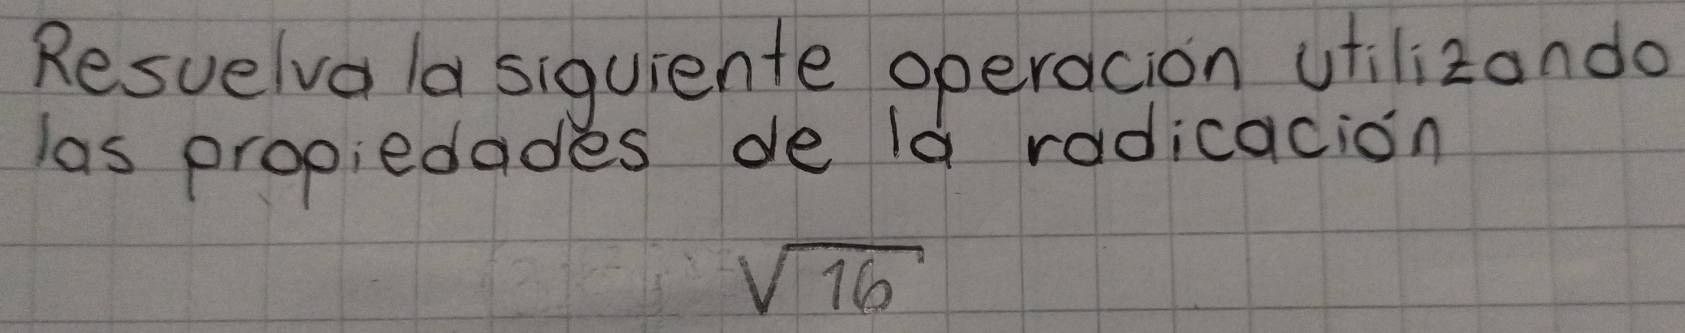 Resuelva la siguiente operación utilizando
las propiedades de la radicación
√16